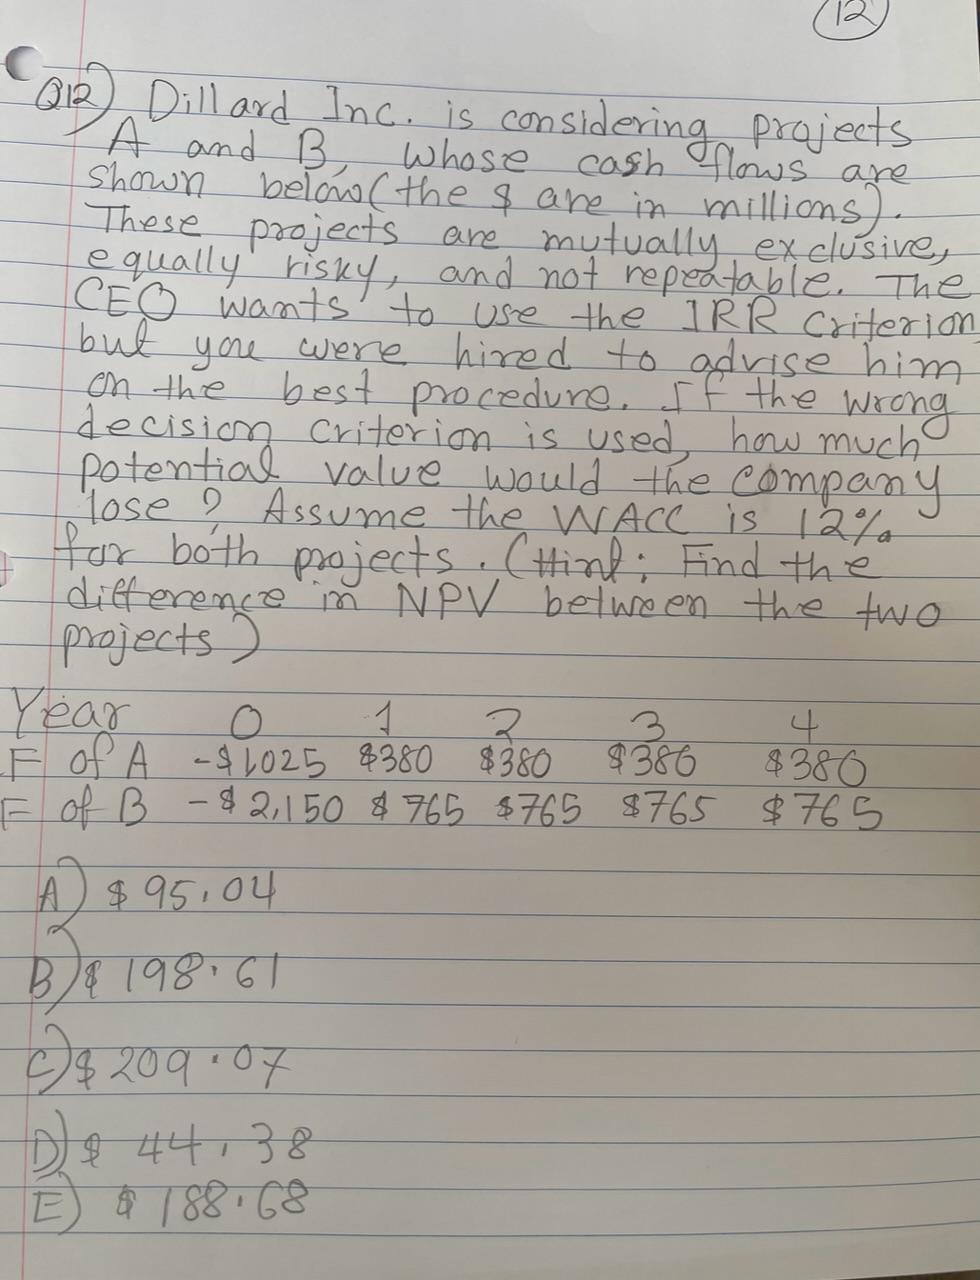 12
Q12) Dillard Inc. is considering projects
A and B, whose cash flows are
shown below (the $ are in millions).
These projects are mutually exclusive,
equally risky, and not repeatable. The
CEO wants to use the IRR criterion
but you were hired to advise him
on the best procedure. If the wrong
decision criterion is used, how much
potential value would the company
lose? Assume the WACC is 12%
for both projects. (Hint: Find the
difference in NPV between the two
projects)
Year 0 1 2 3 4
F of A -$1025 $380 $380 $380 $380
F of B -$2,150 $765 $765 $765 $765
A) $95.04
B) $198.61
C) $209.07
D) $44.38
E) $188.68